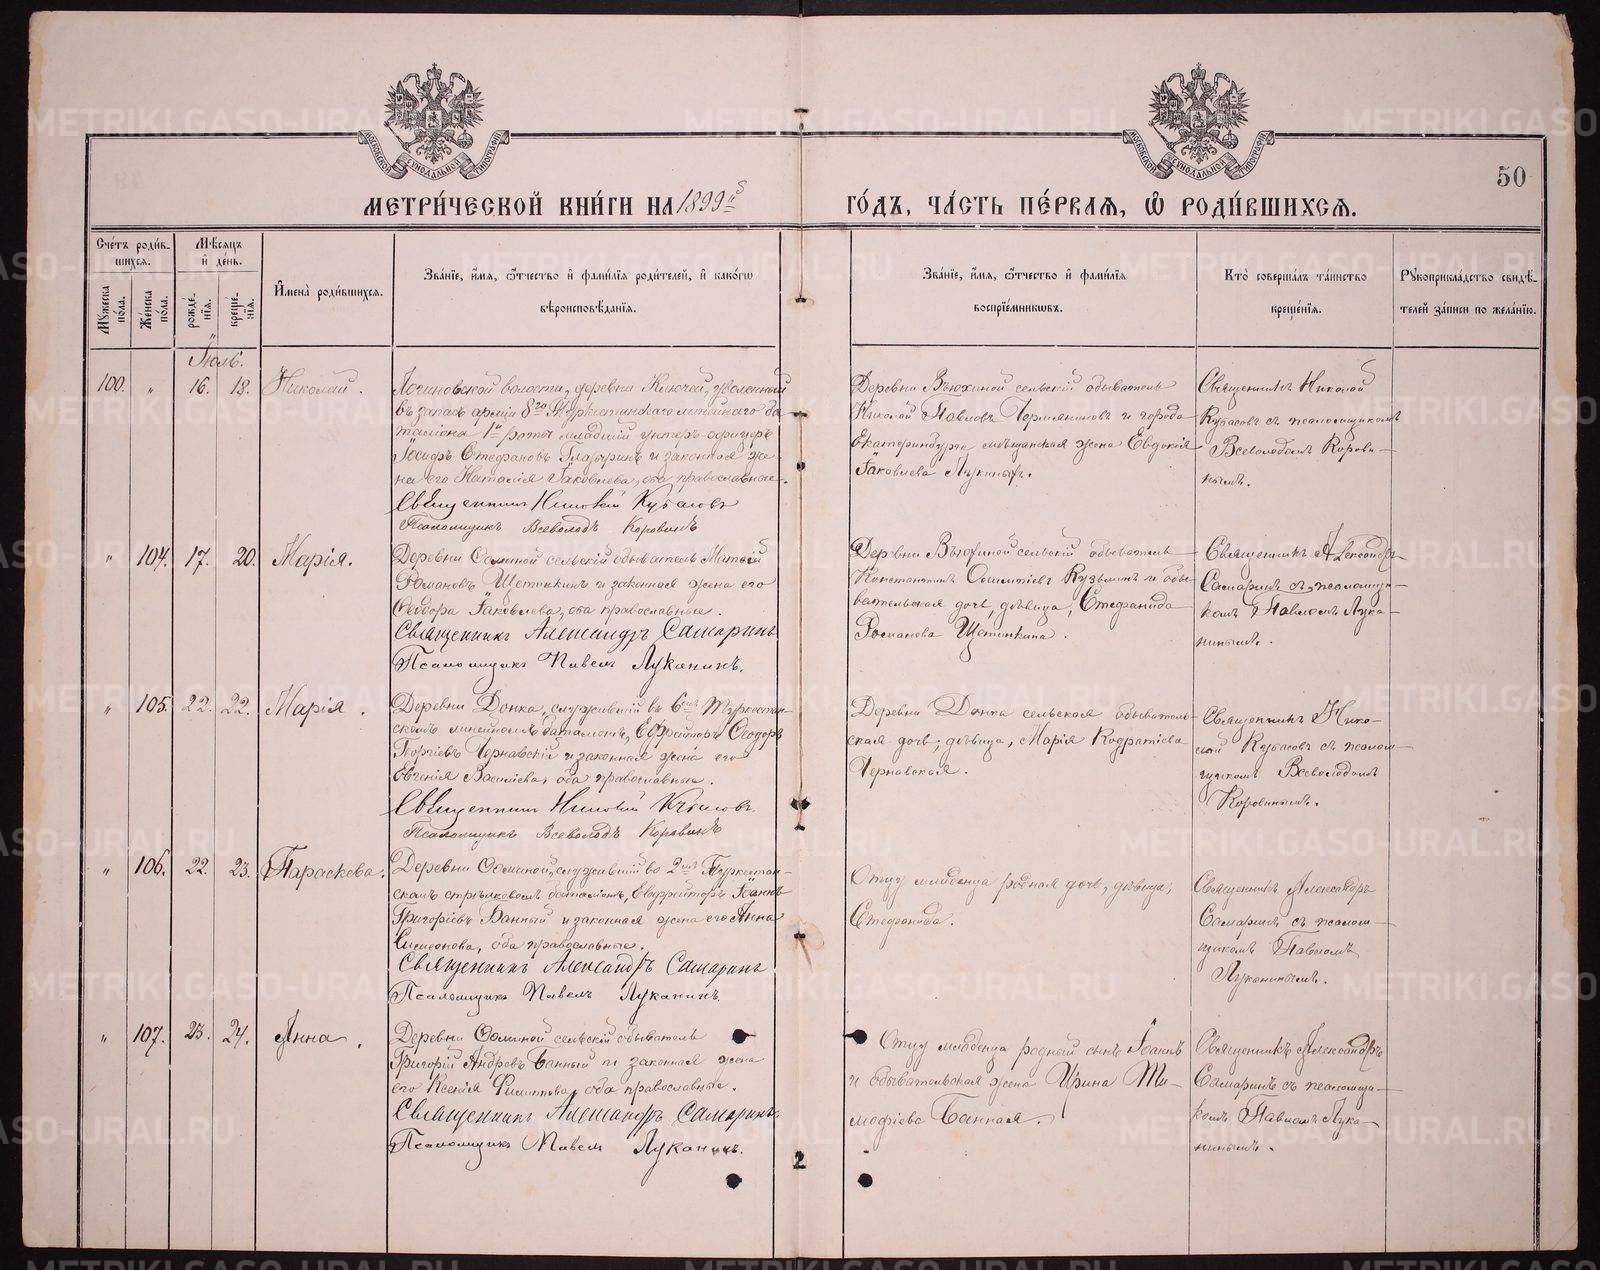 50
МЕТРИ́ЧЕСКОЙ КНИ́ГИ НА 1899й
ГО́ДЪ, ЧА́СТЬ ПЕ́РВАЯ, Ѽ РОДИ́ВШИХСЯ.
Сче́тъ роди́в-
шихся.
Мꙋжеска по́ла.
Же́нска по́ла.
Мѣ́сяцъ
и҆ де́нь.
рожде́нїя.
креще́нїя.
И҆мена̀ роди́вшихся.
Зва́нїе, и҆́мя, ѻ҆́тчество и҆ фами́лїя роди́телей, и҆ како́гѡ
вѣроисповѣ́данїя.
Зва́нїе, и҆́мя, ѻ҆́тчество и҆ фами́лїя
воспрїе́мникѡвъ.
Кто̀ соверша́лъ та́инство
креще́нїя.
Рꙋкоприкла́дство свидѣ́-
телей за́писи по жела́нїю.
Іюль.
100. " 16. 18. Николай.
Логиновской волости, деревни Ключей, уволенный
въ запасъ армiи 8го Туркестанскаго линейнаго ба-
талiона 1й роты младшiй унтеръ-офицеръ
Іосифъ Стефановъ и законная же-
на его Наталiя Іаковлева, оба православные.
Священникъ Николай Кубасовъ
Псаломщикъ Всеволодъ Коровинъ
Деревни Вьюхиной сельскiй обыватель
Николай Павловъ и города
Екатеринбурга мѣщанская жена Евдокiя
Іаковлева
Священникъ Николай
Кубасовъ съ псаломщикомъ
Всеволодомъ Корови-
нымъ.
" 104. 17. 20. Марія.
Деревни сельскiй обыватель
Романовъ Щетинкинъ и законная жена его
Ѳеодора Іаковлева, оба православные.
Священникъ Александръ Самаринъ
Псаломщикъ Павелъ Луканинъ.
Деревни Вьюхиной сельскiй обыватель
Константинъ Кузьминъ и обы-
вательская дочь, дѣвица, Стефанида
Романова Щетинкина.
Священникъ Александръ
Самаринъ съ псаломщи-
комъ Павломъ Лука-
нинымъ.
" 105. 22. 22. Марія.
Деревни Донка, служившiй въ 6мъ Туркестан-
скомъ линейномъ баталiонѣ, Ефрейторъ Ѳеодоръ
Георгiевъ Чернавскiй и законная жена его
Евгенiя Василiева, оба православные.
Священникъ Николай Кубасовъ
Псаломщикъ Всеволодъ Коровинъ
Деревни Донка сельская обыватель-
ская дочь, дѣвица, Марiя Кодратiева
Чернавская.
Священникъ Нико-
лай Кубасовъ съ псалом-
щикомъ Всеволодомъ
Коровинымъ.
" 106. 22. 23. Параскева.
Деревни служившiй во 2мъ Туркестан-
скомъ стрѣлковомъ баталiонѣ, Ефрейторъ Іоаннъ
Григорiевъ Банный и законная жена его Анна
Симеонова, оба православные.
Священникъ Александръ Самаринъ
Псаломщикъ Павелъ Луканинъ.
Отцу младенца родная дочь, дѣвица,
Стефанида.
Священникъ Александръ
Самаринъ съ псалом-
щикомъ Павломъ
Луканинымъ.
" 107. 23. 24. Анна.
Деревни сельскiй обыватель
Григорiй Андреевъ Банный и законная жена
его Ксенiя Филиппова, оба православные.
Священникъ Александръ Самаринъ
Псаломщикъ Павелъ Луканинъ.
Отцу младенца родный сынъ Іоаннъ
и обывательская жена Ирина Ти-
мофiева Банная.
Священникъ Александръ
Самаринъ съ псаломщи-
комъ Павломъ Лука-
нинымъ.
METRIKI.GASO-URAL.RU